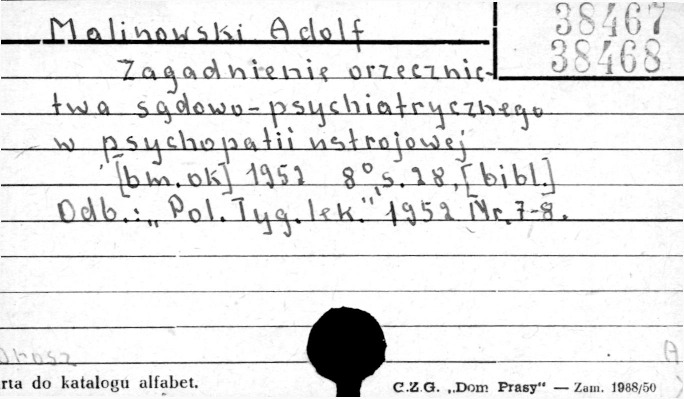 Malinowski Adolf
38467
38468
Zagadnienie orzecznic-
twa sądowo-psychiatrycznego
w psychopatii ustrojowej
[bm. ok] 1952 8°, s. 28, [bibl.]
Odb.: „Pol. Tyg. lek." 1952 Nr. 7-8.
A
rta do katalogu alfabet.
C.Z.G. „Dom Prasy“ — Zam. 1988/50